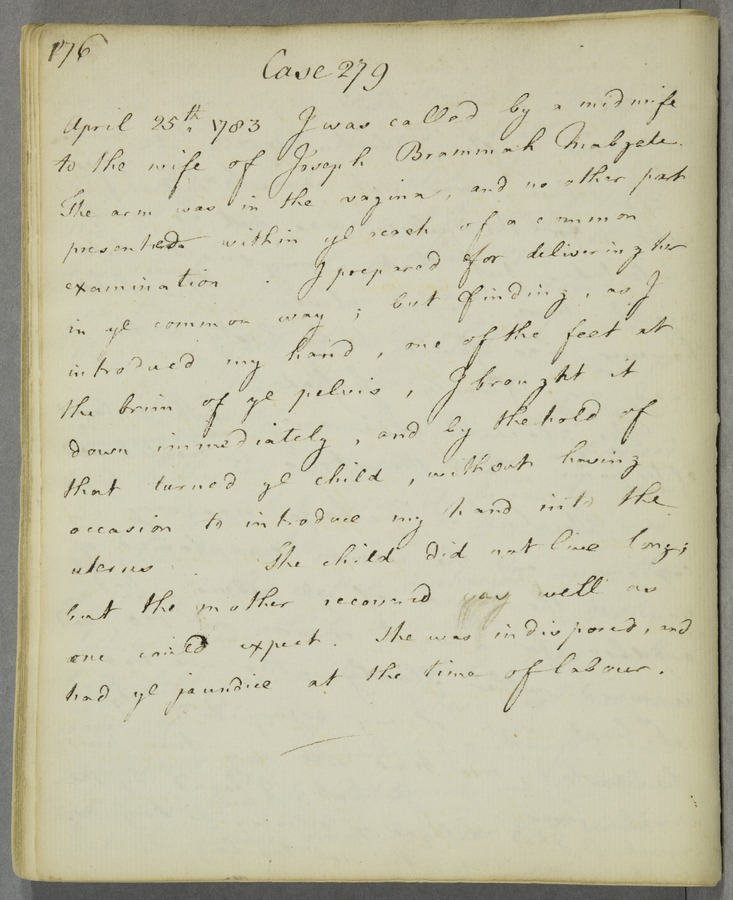 176
Case 279
April 25th. 1783 I was called by a midwife
to the wife of Joseph Brammah Mabgate.
The arm was in the vagina, and no other part
presented within ye reach of a common
examination. I prepared for delivering her
in ye common way; but finding, as I
introduced my hand, one of the feet at
the brim of ye pelvis, I brought it
down immediately, and by the hold of
that turned ye child, without having
occasion to introduce my hand into the
uterus. The child did not live long;
but the mother recovered as well as
one could expect. She was indisposed, and
had ye jaundice at the time of labour.